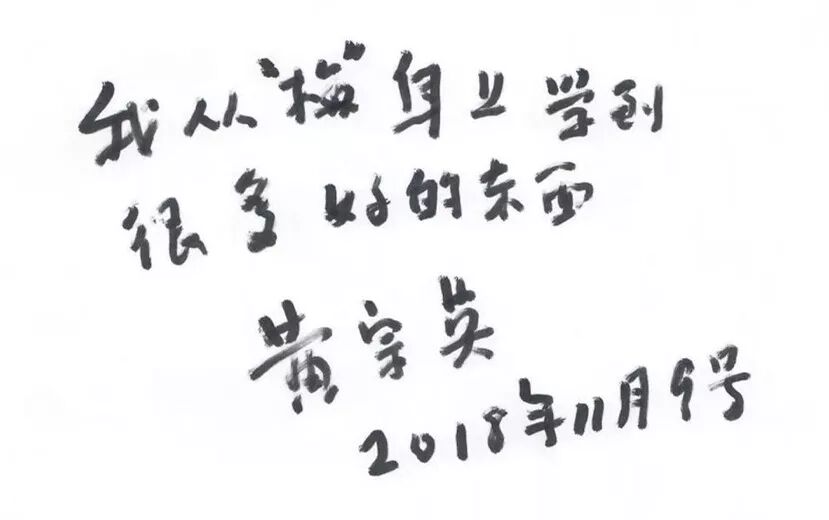 我从"梅"身上学到
很多好的东西
黄宗英
2018年11月9号